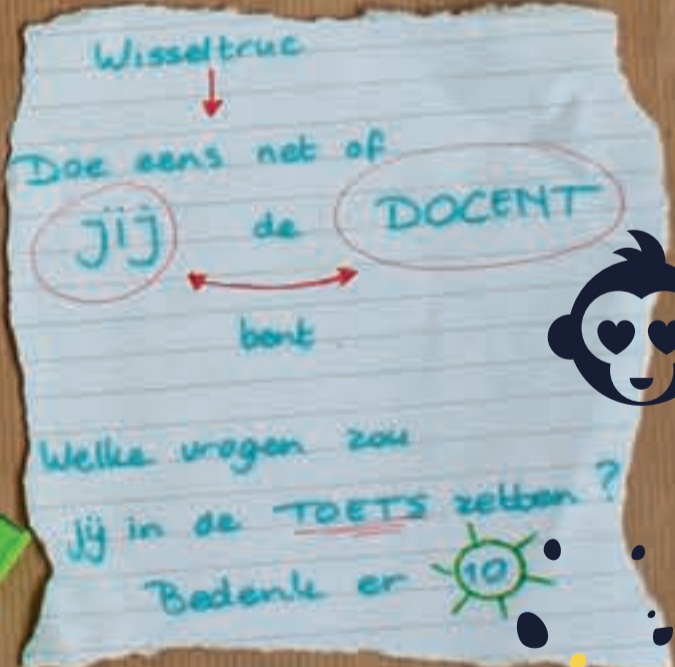 Wisseltruc
Doe eens net of
jij de DOCENT
bent
Welke vragen zou
jij in de TOETS zetten?
Bedenk er 10